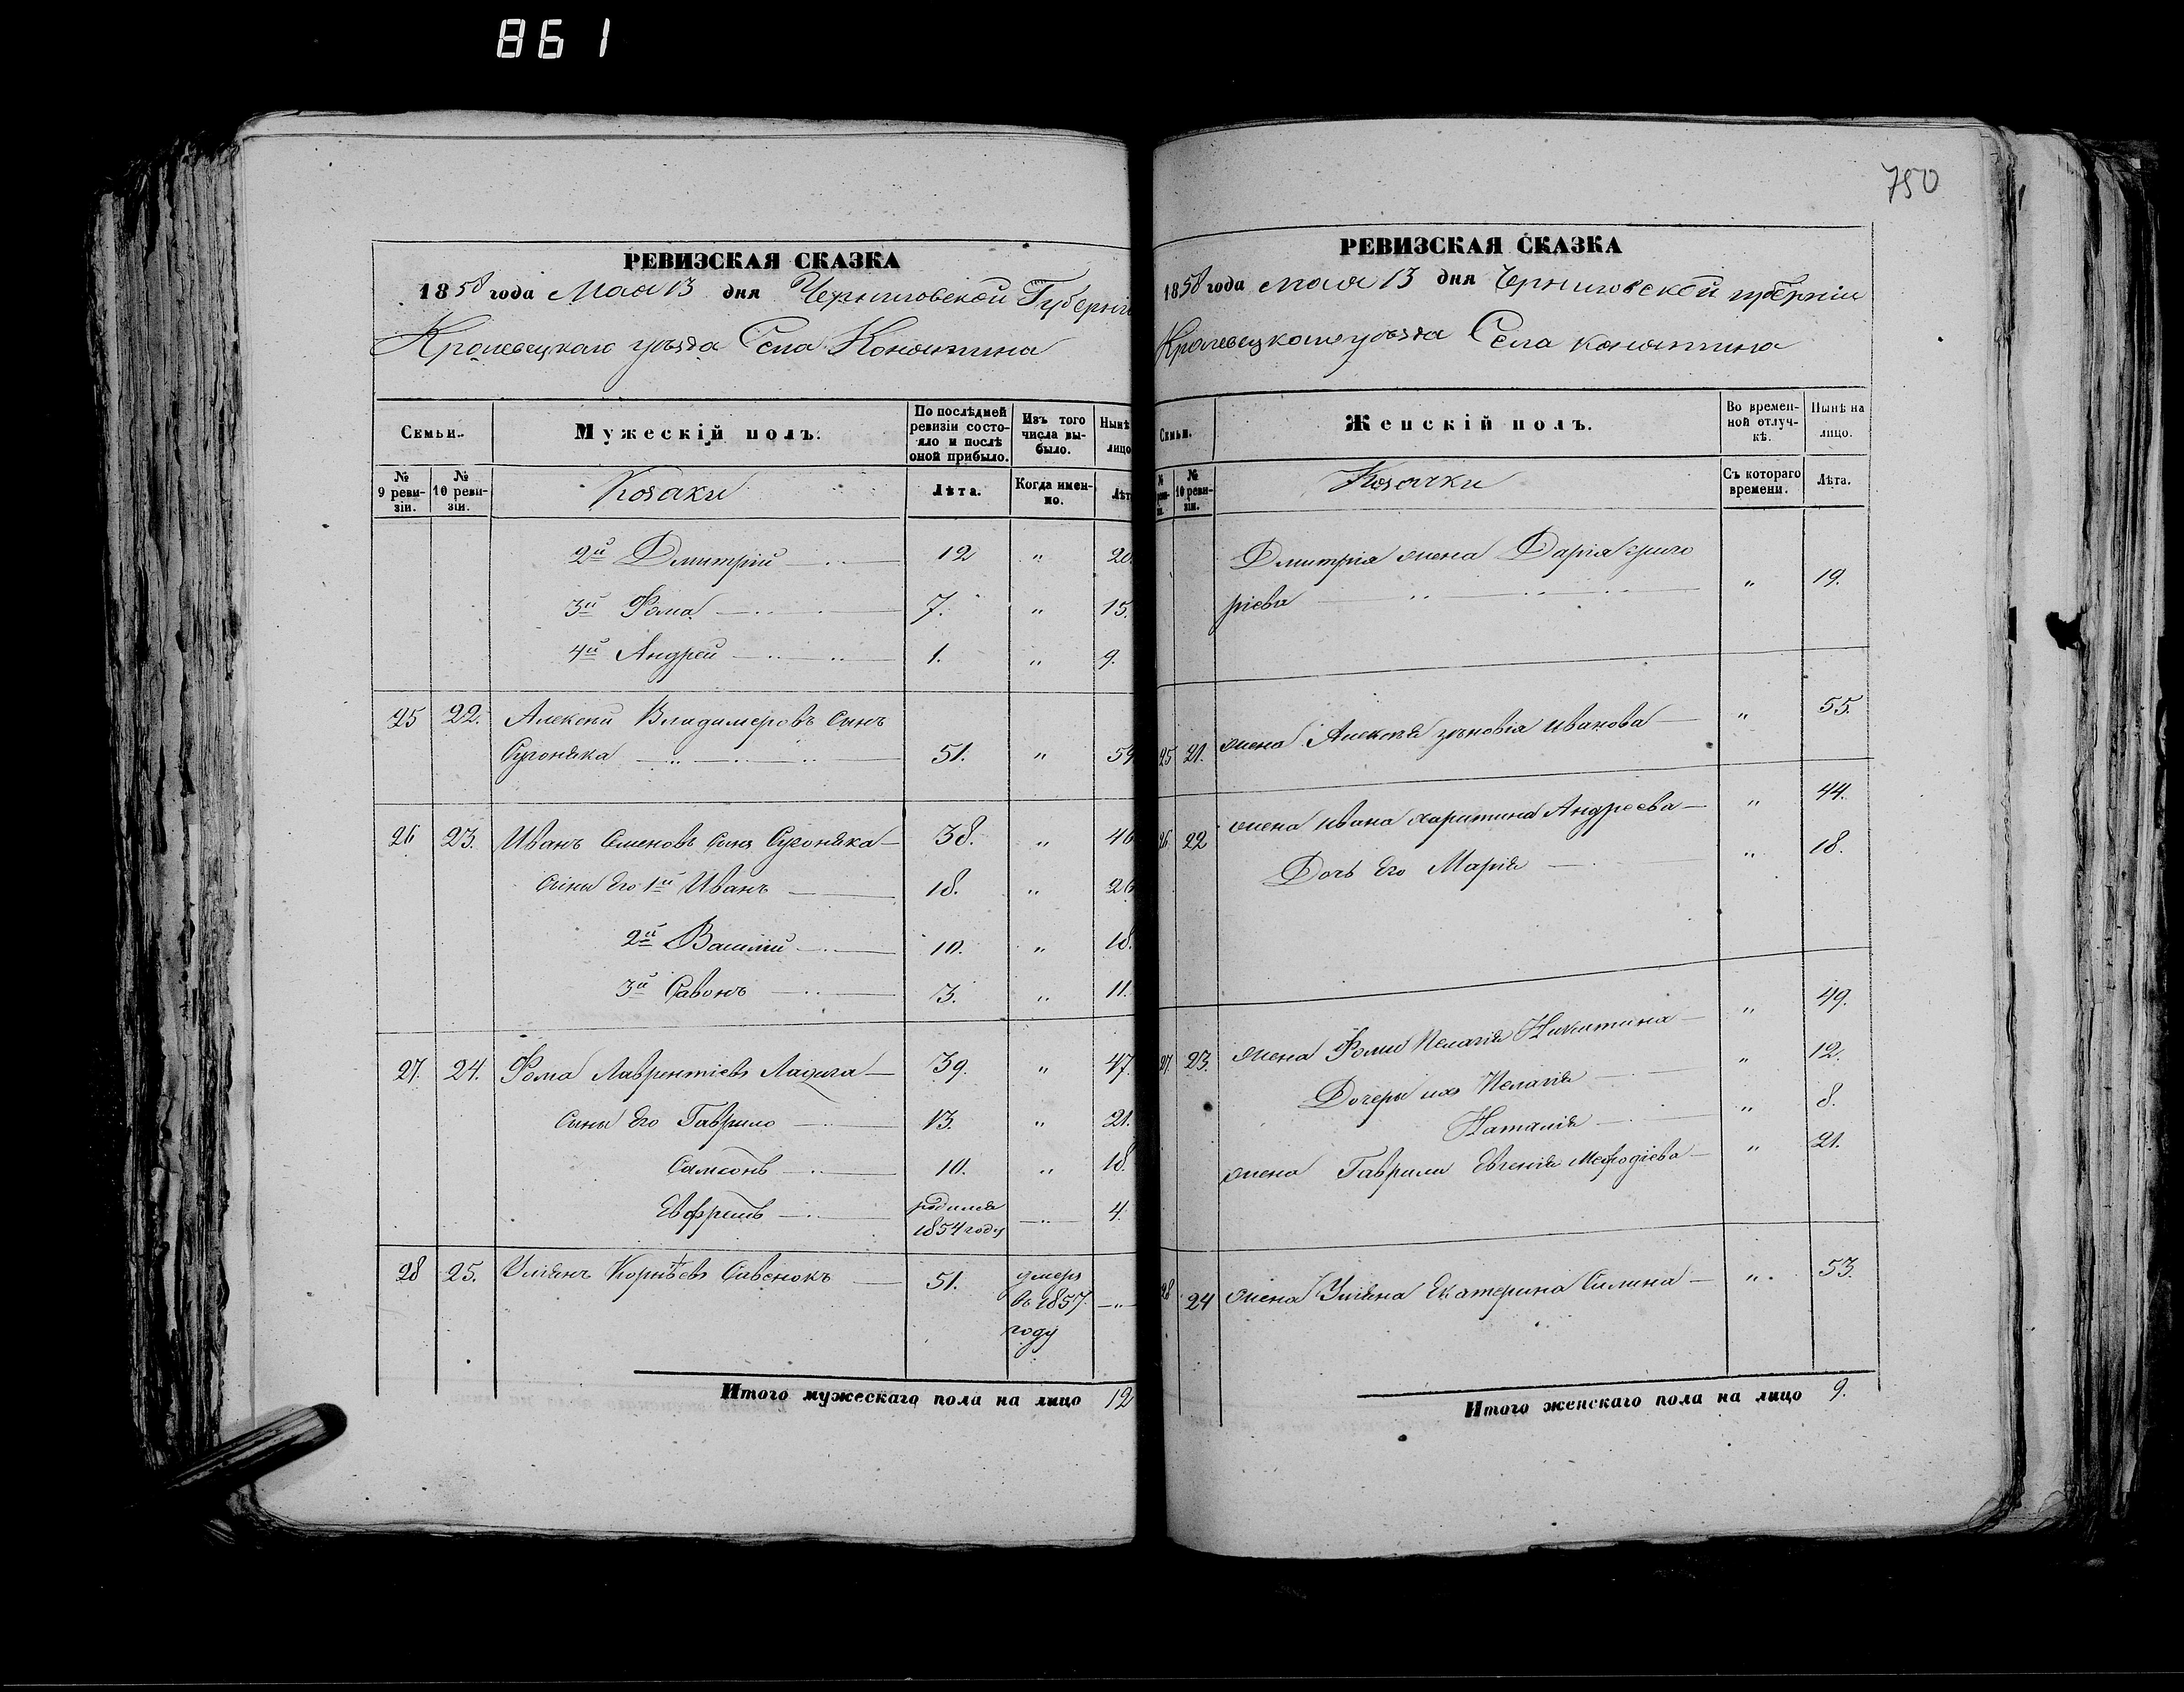 861
РЕВИЗСКАЯ СКАЗКА
1858 года Мая 13 дня Черниговской Губерніи
Кролевецкаго уѣзда Села Конятина
Семьи.
Мужескій полъ.
По послѣдней ревизіи состояло и послѣ оной прибыло.
Изъ того числа выбыло.
Нынѣ лицо
№ 9 ревизіи.
№ 10 ревизіи.
Козаки
Лѣта.
Когда именно.
Лѣт
2й Дмитрій 12 " 20.
3й Фома 7. " 15.
4й Андрей 1. " 9.
25 22. Алексѣй Владимеровъ Сынъ
51. " 59
26 23. Иванъ Семеновъ Сынъ 38. " 46
Сыны Его 1й Иванъ 18. " 26
2й Василій 10. " 18.
3й Савонъ 3. " 11.
27. 24. Фома Лаврентіевъ 39. " 47.
Сыны Его Гаврило 13. " 21.
Самсонъ 10. " 18.
родился
1854 году 4.
28 25. Уліянъ Корнѣевъ Савенокъ 51. умеръ
въ 1857.
году
Итого мужескаго пола на лицо 12
750
РЕВИЗСКАЯ СКАЗКА
1858 года мая 13 дня Черниговской губерніи
Кролевецкого уѣзда Села конятина
Семьи.
Женскій полъ.
Во временной отлучкѣ.
Нынѣ на лицо.
№ 10 ревизіи.
Козачки
Съ котораго времени.
Лѣта.
Дмитрія жена Дарія григо
ріева " 19.
25 21. жена Алексѣя зѣновія иванова " 55.
26. 22 жена ивана харитина Андреева " 44.
Дочь Его Марія " 18.
27. 23. жена Фомы Пелагія Никитина " 49.
Дочери ихъ Пелагія " 12.
Наталія " 8.
жена Гаврили Евгенія Мефодіева " 21.
28 24 жена Уліяна Екатерина Силина " 53.
Итого женскаго пола на лицо 9.